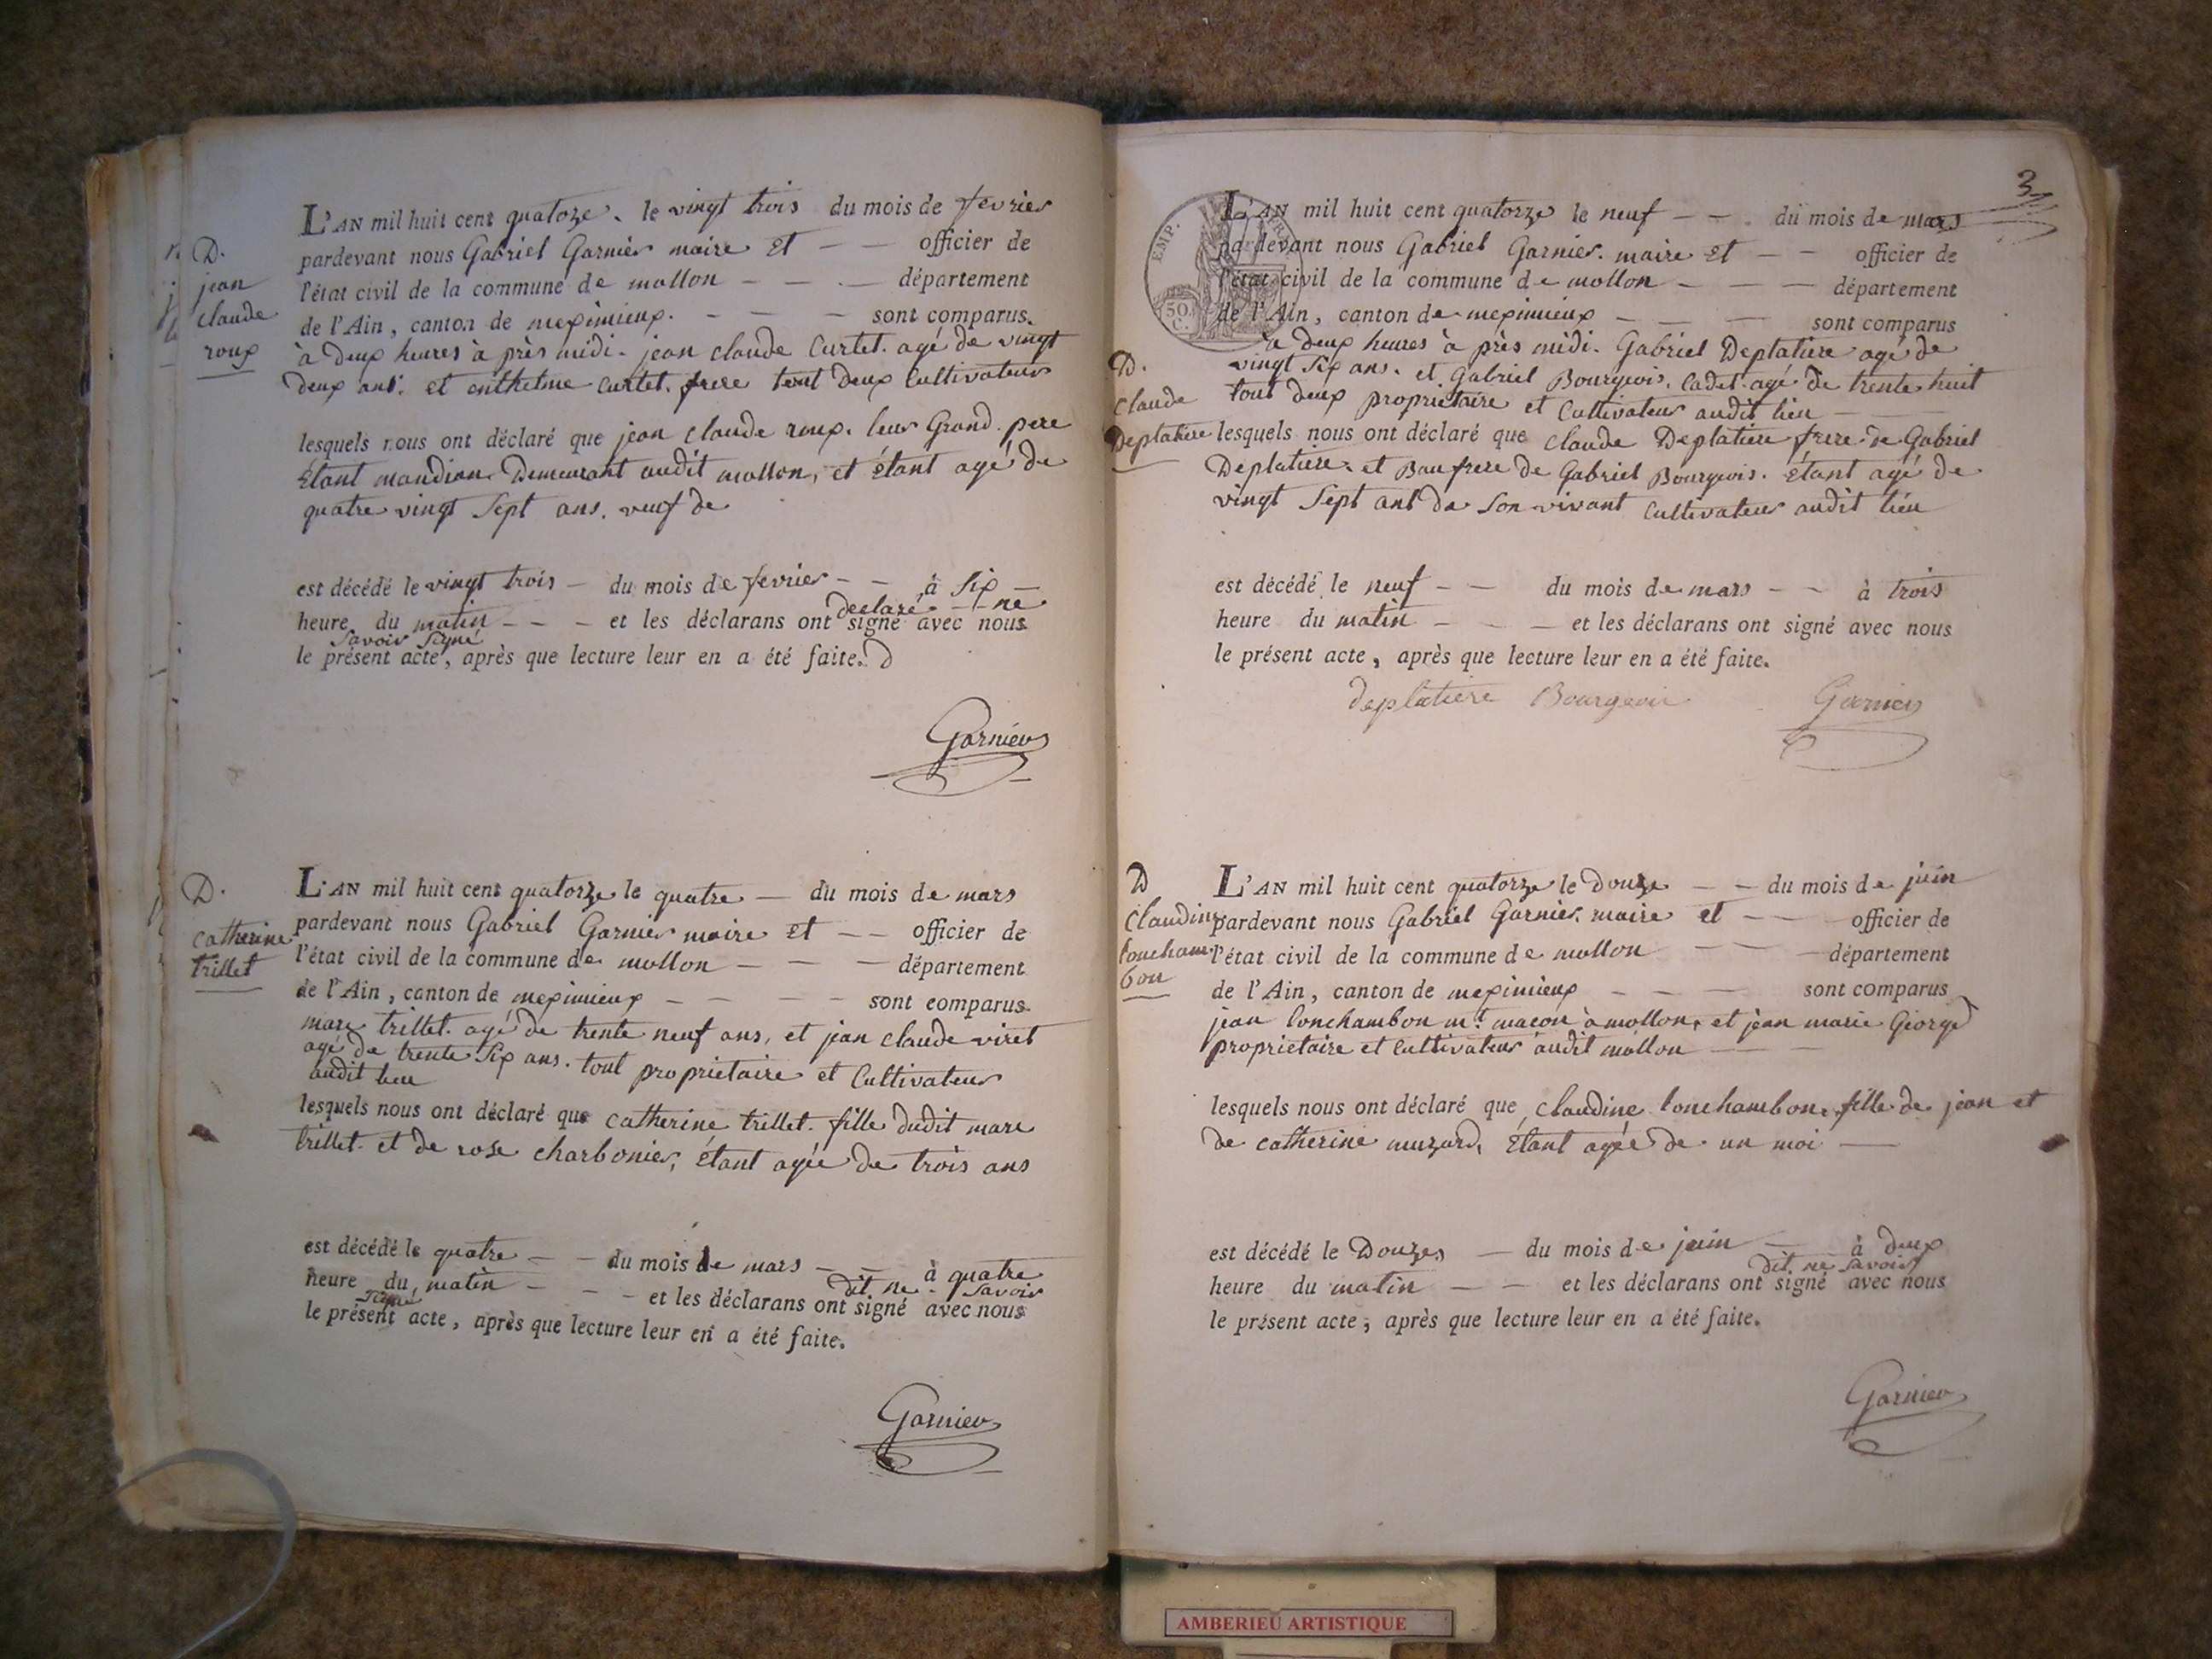 D.
jean
claude
roux
L'AN mil huit cent quatorze. le vingt trois du mois de fevrier
pardevant nous Gabriel Garnier maire et — — officier de
l'état civil de la commune de mollon — — — département
de l'Ain, canton de meximieux. — — — sont comparus.
à deux heures à près midi. jean claude Curtet. agé de vingt
deux ans. et enthelme curtet. frere tout deux Cultivateurs
lesquels nous ont déclaré que jean claude roux. leur Grand. pere
Étant mandian Demeurant audit mollon, et étant agé de
quatre vingt Sept ans. veuf de
est décédé le vingt trois — du mois de fevrier — — à Six —
declaré — ne
heure du matin — — — et les déclarans ont signé avec nous
savoir signé
le présent acte, après que lecture leur en a été faite.
Garnier
D.
catherine
trillet
L'AN mil huit cent quatorze le quatre — du mois de mars
pardevant nous Gabriel Garnier maire et — — officier de
l'état civil de la commune de mollon — — — département
de l'Ain, canton de meximieux — — — — sont comparus
marc trillet. agé de trente neuf ans, et jean claude viret
agé de trente Six ans. tout proprietaire et Cultivateur
audit lieu
lesquels nous ont déclaré que catherine trillet. fille dudit marc
trillet. et de rose charbonier, étant agée de trois ans
est décédé le quatre — — du mois de mars — — à quatre
dit ne savoir
heure du matin — — — et les déclarans ont signé avec nous
signé
le présent acte, après que lecture leur en a été faite.
Garnier
3
EMP.
50
C.
D.
Claude
Deplatiere
L'AN mil huit cent quatorze le neuf — — du mois de mars
pardevant nous Gabriel Garnier. maire et — — officier de
l'état civil de la commune de mollon — — — département
de l'Ain, canton de meximieux — — — sont comparus
à deux heures à près midi. Gabriel Deplatiere agé de
vingt six ans. et Gabriel Bourgeois. Cadet. agé de trente huit
tout deux proprietaire et Cultivateur audit lieu — —
lesquels nous ont déclaré que Claude Deplatiere frere de Gabriel
Deplatiere. et Baufrere de Gabriel Bourgeois. étant agé de
vingt Sept ans de son vivant Cultivateur audit lieu
est décédé le neuf — — du mois de mars — — à trois
heure du matin — — — et les déclarans ont signé avec nous
le présent acte, après que lecture leur en a été faite.
deplatiere Bourgeois Garnier
D
Claudine
loncham
bon
L'AN mil huit cent quatorze le Douze — — du mois de juin
pardevant nous Gabriel Garnier. maire et — — officier de
l'état civil de la commune de mollon — — — département
de l'Ain, canton de meximieux — — — sont comparus
jean lonchambon mt. maçon à mollon, et jean marie George
proprietaire et Cultivateur audit mollon — —
lesquels nous ont déclaré que claudine lonchambon, fille de jean et
de catherine muzard, Étant agée de un moi —
est décédé le Douzes — du mois de juin — à deux
dit ne savoir
heure du matin — — et les déclarans ont signé avec nous
le présent acte, après que lecture leur en a été faite.
Garnier
AMBERIEU ARTISTIQUE